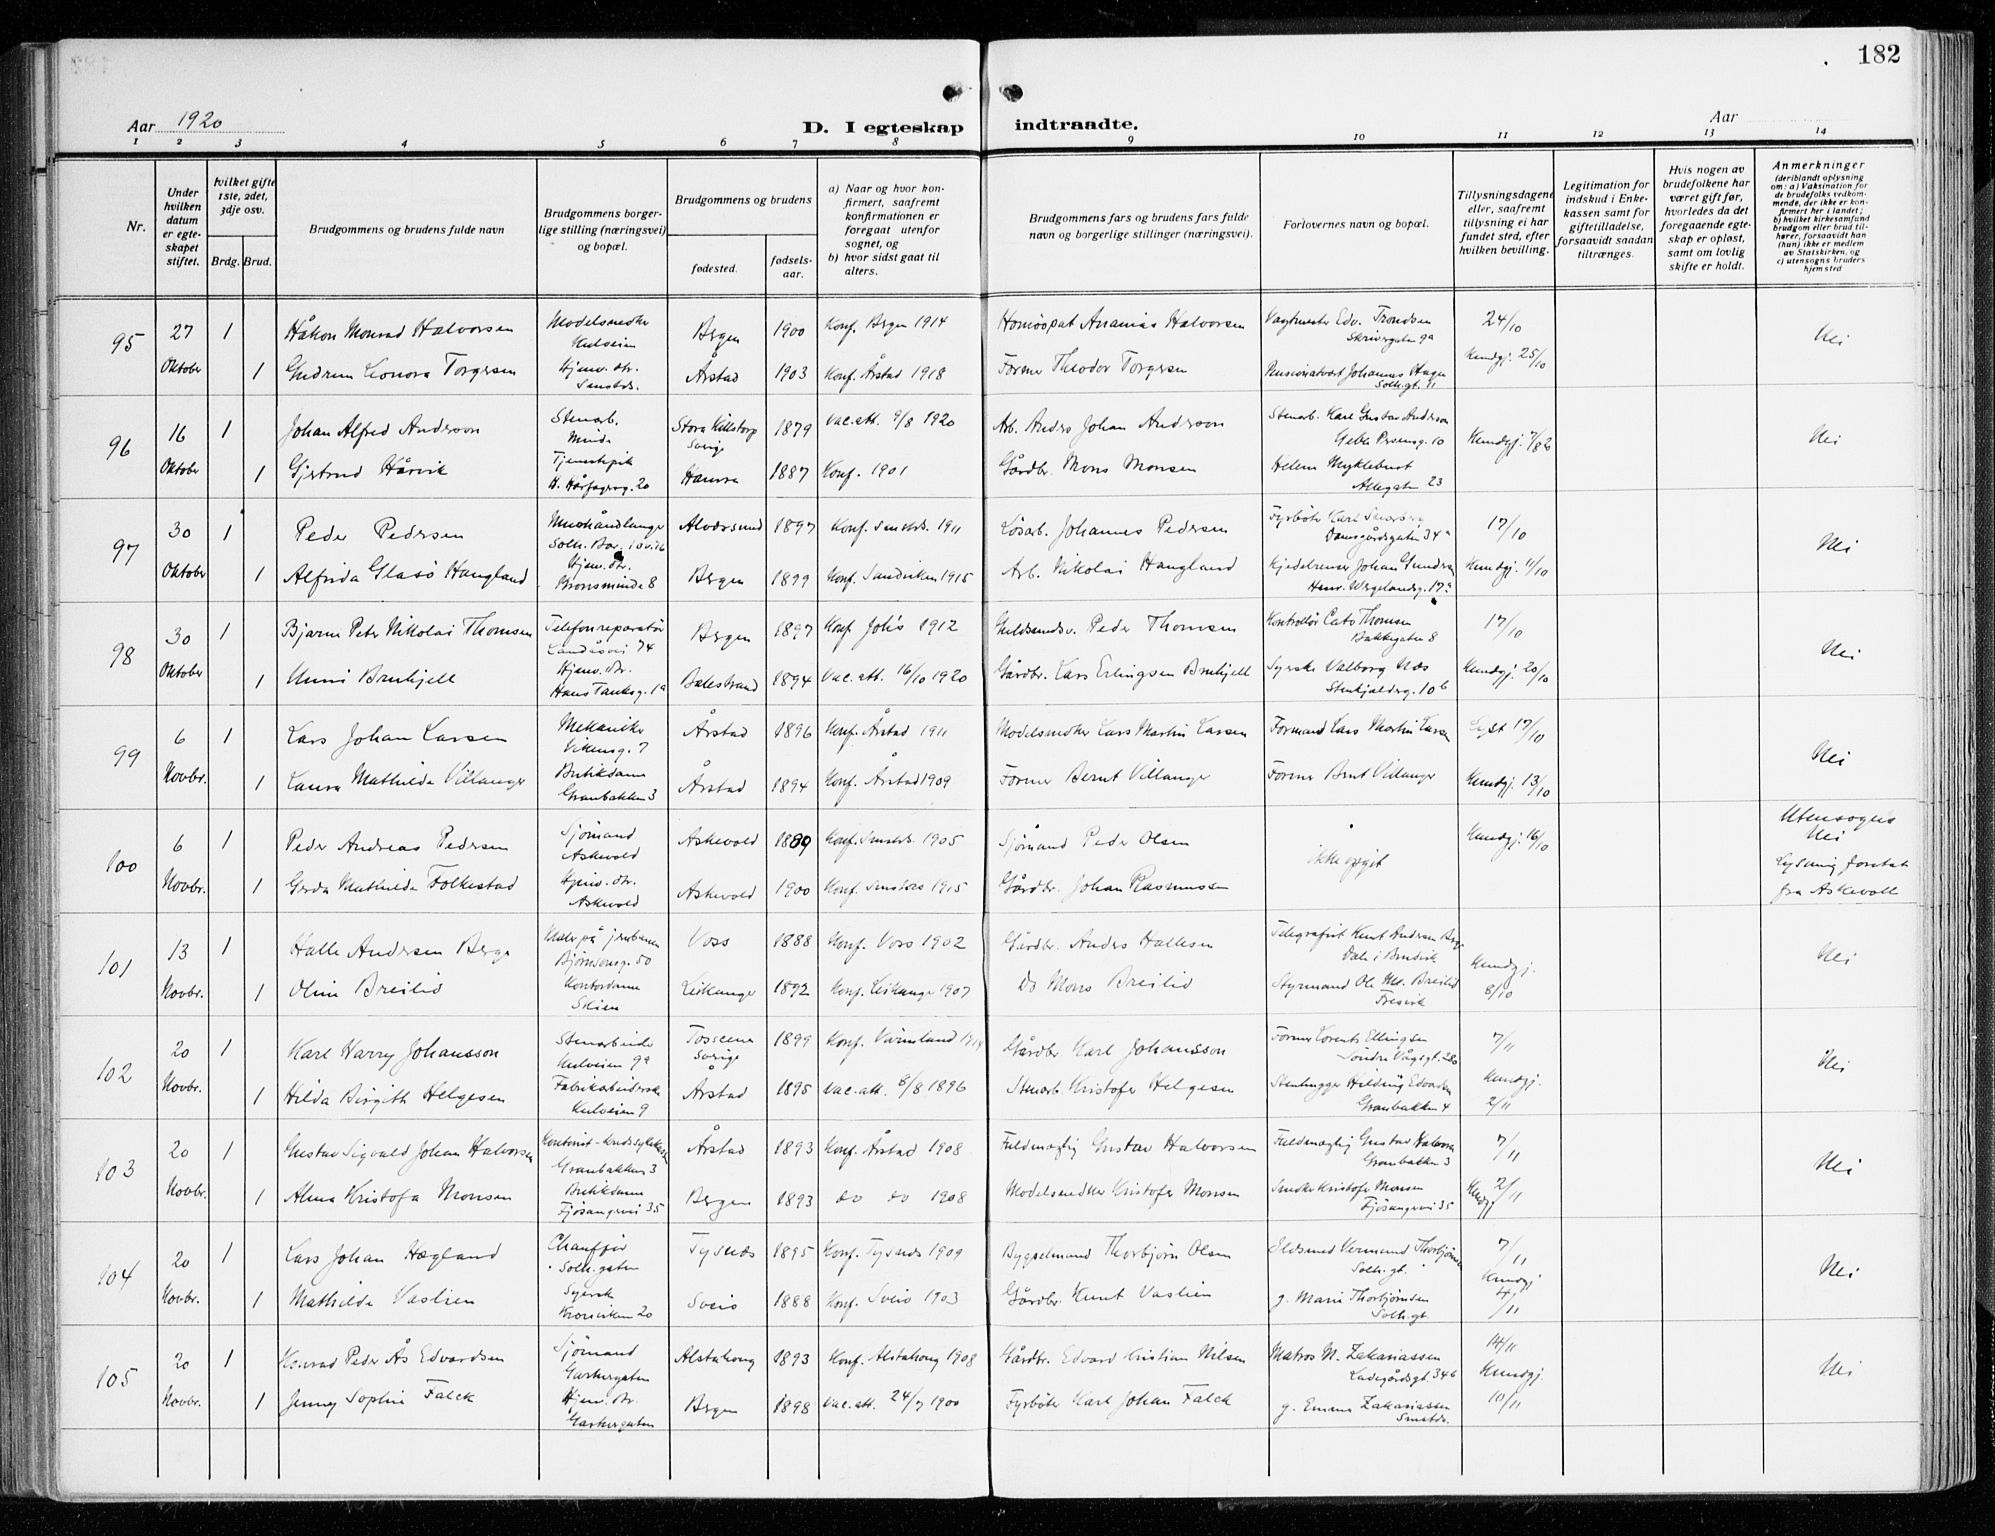 182
Aar 1920
D. I egteskap indtraadte.
Aar
1 2 3 4 5 6 7 8 9 10 11 12 13 14
Nr.
Under hvilken datum er egteskapet stiftet.
hvilket gifte 1ste, 2det, 3dje osv.
Brdg. Brud.
Brudgommens og brudens fulde navn
Brudgommens borgerlige stilling (næringsvei) og bopæl.
Brudgommens og brudens
fødested.
fødselsaar.
a) Naar og hvor konfirmert, saafremt konfirmationen er foregaat utenfor sognet, og
b) hvor sidst gaat til alters.
Brudgommens fars og brudens fars fulde navn og borgerlige stillinger (næringsvei).
Forlovernes navn og bopæl.
Tillysningsdagene eller, saafremt tillysning ei har fundet sted, efter hvilken bevilling.
Legitimation for indskud i Enkekassen samt for giftetilladelse, forsaavidt saadan tiltrænges.
Hvis nogen av brudefolkene har været gift før, hvorledes da det foregaaende egteskap er opløst, samt om lovlig skifte er holdt.
Anmerkninger
(deriblandt oplysning om: a) Vaksination for de brudefolks vedkommende, der ikke er konfirmert her i landet; b) hvilket kirkesamfund brudgom eller brud tilhører, forsaavidt han (hun) ikke er medlem av Statskirken, og c) utensogns bruders hjemsted
95 27 1 Håkon Monrad Halvorsen Modelsnedker Bergen 1900 Konf. Bergen 1914 Homöopat Ananias Halvorsen Vagtmester Edv. Trondsen Skrivergaten 9a 24/10 Nei
Oktober 1 Gudrun Leonora Torgersen Hjemv. dtr. Årstad 1903 Konf. Årstad 1918 Former Theodor Torgersen Johannes Hagen Solh.gt. 11 Kundgj. 25/10
96 16 1 Johan Alfred Anderson Stenarb. Minde Stora Killstorp Sverige 1879 vac. att. 9/8 1920 Arb. Anders Johan Anderson Stenarb. Karl Gustav Anderson 10 Kundgj. Nei
Oktober 1 Gjertrud Hårvik H. Hårfagersg. 20 1887 Konf. 1901 Gårdbr. Mons Monsen Helene Myklebust Allegaten 23
97 30 1 Peder Pedersen Alversund 1897 Konf. 1911 Løsarb. Johannes Pedersen Fyrbøter Karl Damsgårdsgaten 34a 17/10 Nei
Oktober 1 Alfrida Glasö Haugland Hjemv. dtr. Kronsminde 8 Bergen 1899 Konf. Sandviken 1915 Arb. Nikolai Haugland Kjedelrenser Johan Henr. Wergelandsg. 17a Kundgj. 11/10
98 30 1 Bjarne Peter Nikolai Thomsen Telefonreparatør Landåsvei 74 Bergen 1897 Konf. Joh's 1912 Guldsmedsv. Peder Thomsen Kontrollør Cato Thomsen Bakkegaten 8 17/10 Nei
Oktober 1 Unni Brekjell Hjemv. dtr. Hans Tanksg. 1a Balestrand 1894 vac. att. 16/10 1920 Gårdbr. Lars Erlingsen Syerske Valborg Næs 10b Kundgj. 20/10
99 6 1 Lars Johan Larsen Mekaniker Vikensg. 7 Årstad 1896 Konf. Årstad 1911 Modelsnedker Lars Martin Larsen Formand Lars Martin Larsen Lyst 17/10 Nei
Novbr. 1 Laura Mathilde Villanger Butikdame Granbakken 3 Årstad 1894 Konf. Årstad 1909 Former Bernt Villanger Former Bernt Villanger Kundgj. 13/10
100 6 1 Peder Andreas Pedersen Sjømand Askevold Askevold 1889 Konf. 1905 Sjømand Peder Olsen ikke opgit Kundgj. 16/10 Utensogns Nei
Novbr. 1 Gerda Mathilde Folkestad Hjemv. dtr. Askevold Askevold 1900 Konf. 1915 Gårdbr. Johan Rasmussen Lysning foretat fra Askevoll
101 13 1 Halle Andersen Berge Maler på jernbanen Bjørnsonsg. 50 Voss 1888 Konf. Voss 1902 Gårdbr. Anders Hallesen Telegrafist Knut Andersen Dale i Bruvik Kundgj. 8/10 Nei
Novbr. 1 Oline Breilid Kontordame Skien Leikanger 1892 Konf. Leikanger 1907 Do Mons Breilid Styrmand Ole Ms. Breilid Fresvik
102 20 1 Karl Harry Johansson Stenarbeider 9a Tossene Sverige 1899 Konf. Värmland 1914 Gårdbr. Karl Johansson Former Lorents Ellingsen Søndre Vågsgt. 7/11 Nei
Novbr. 1 Hilda Birgith Helgesen Fabrikarbeiderske 9 Årstad 1895 vac. att. 8/8 1896 Stenarb. Kristofer Helgesen Stenhugger Granbakken 4 Kundgj. 2/11
103 20 1 Gustav Sigvald Johan Halvorsen Granbakken 3 Årstad 1893 Konf. Årstad 1908 Fuldmægtig Gustav Halvorsen Fuldmægtig Gustav Halvorsen Granbakken 3 7/11 Nei
Novbr. 1 Alma Kristofa Monsen Butikdame Fjøsangervei 35 Bergen 1893 do do 1908 Modelsnedker Kristofer Monsen Snedker Kristofer Monsen Fjøsangervei 35 Kundgj. 2/11
104 20 1 Lars Johan Hægland Chauffør Solh.gaten Tysnes 1895 Konf. Tysnes 1909 Bygselmand Thorbjørn Olsen Thorbjørnsen Solh.gt. 7/11 Nei
Novbr. 1 Mathilde Vaslien Syersk Kronviken 20 Sveio 1888 Konf. Sveio 1903 Gårdbr. Knut Vaslien g. Marie Thorbjørnsen Solh.gt. Kundgj. 4/11
105 20 1 Konrad Peder Ås Edvardsen Sjømand Garvergaten Alstahoug 1893 Konf. Alstahoug 1908 Gårdbr. Edvard Kristian Nilsen Matros N. Zakariassen Ladegårdsgt. 14/11 Nei
Novbr. 1 Jenny Sophie Falck Hjemv. dtr. Garvergaten Bergen 1898 vac. att. 24/7 1900 Fyrbøter Karl Johan Falck g. Emma Zakariassen Kundgj. 10/11